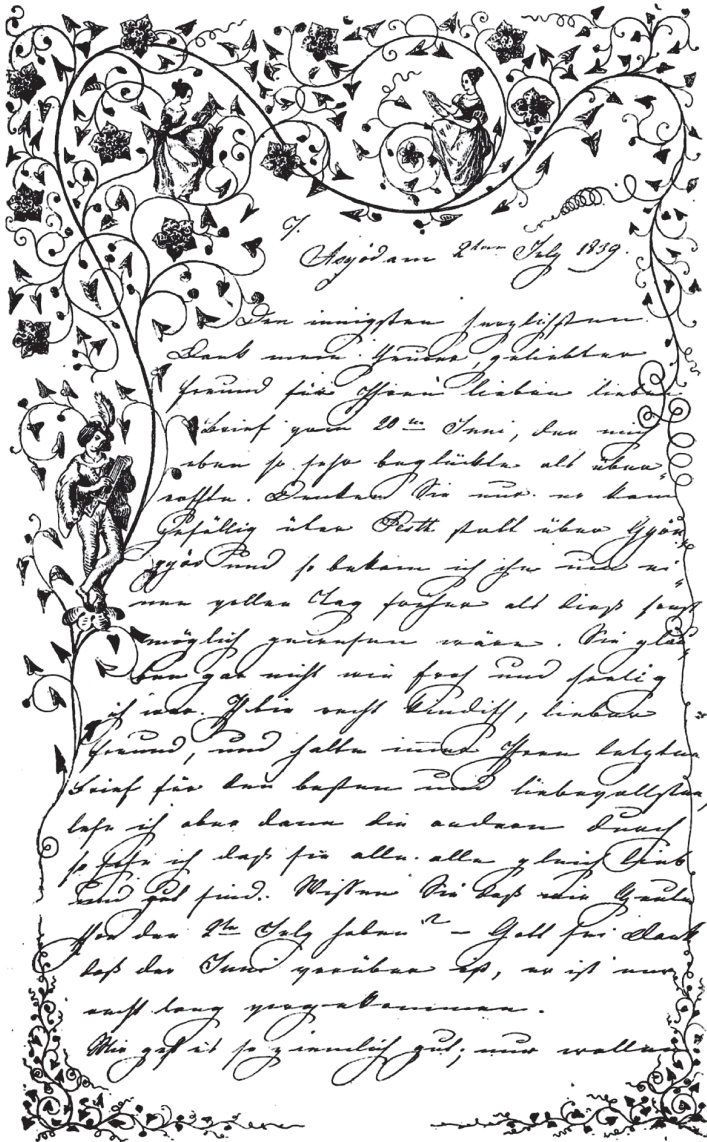 7.
Aszód am 2ten July 1839.
Den innigsten herzlichsten
Dank mein theurer, geliebter
Freund für Ihren lieben lieben
Brief vom 20ten Juni, der mich
eben so sehr beglückte als über-
raschte. Denken Sie nur er kam
zufällig über Pesth statt über Gyön-
gyös und so bekam ich ihn um ei-
nen vollen Tag früher als dieß sonst
möglich gewesen wäre. Sie glau-
ben gar nicht wie froh und seelig
ich war. Ich bin recht kindisch, lieber
Freund, und halte immer Ihren letzten
Brief für den besten und liebevollsten,
lese ich aber dann die andern durch
so sehe ich daß sie alle alle gleich lieb
und gut sind. Wissen Sie daß wir heute
schon den 2ten July haben? – Gott sei Dank
daß der Juni vorüber ist, er ist mir
recht lang vorgekommen.
Mir geht es so ziemlich gut; nur wollen